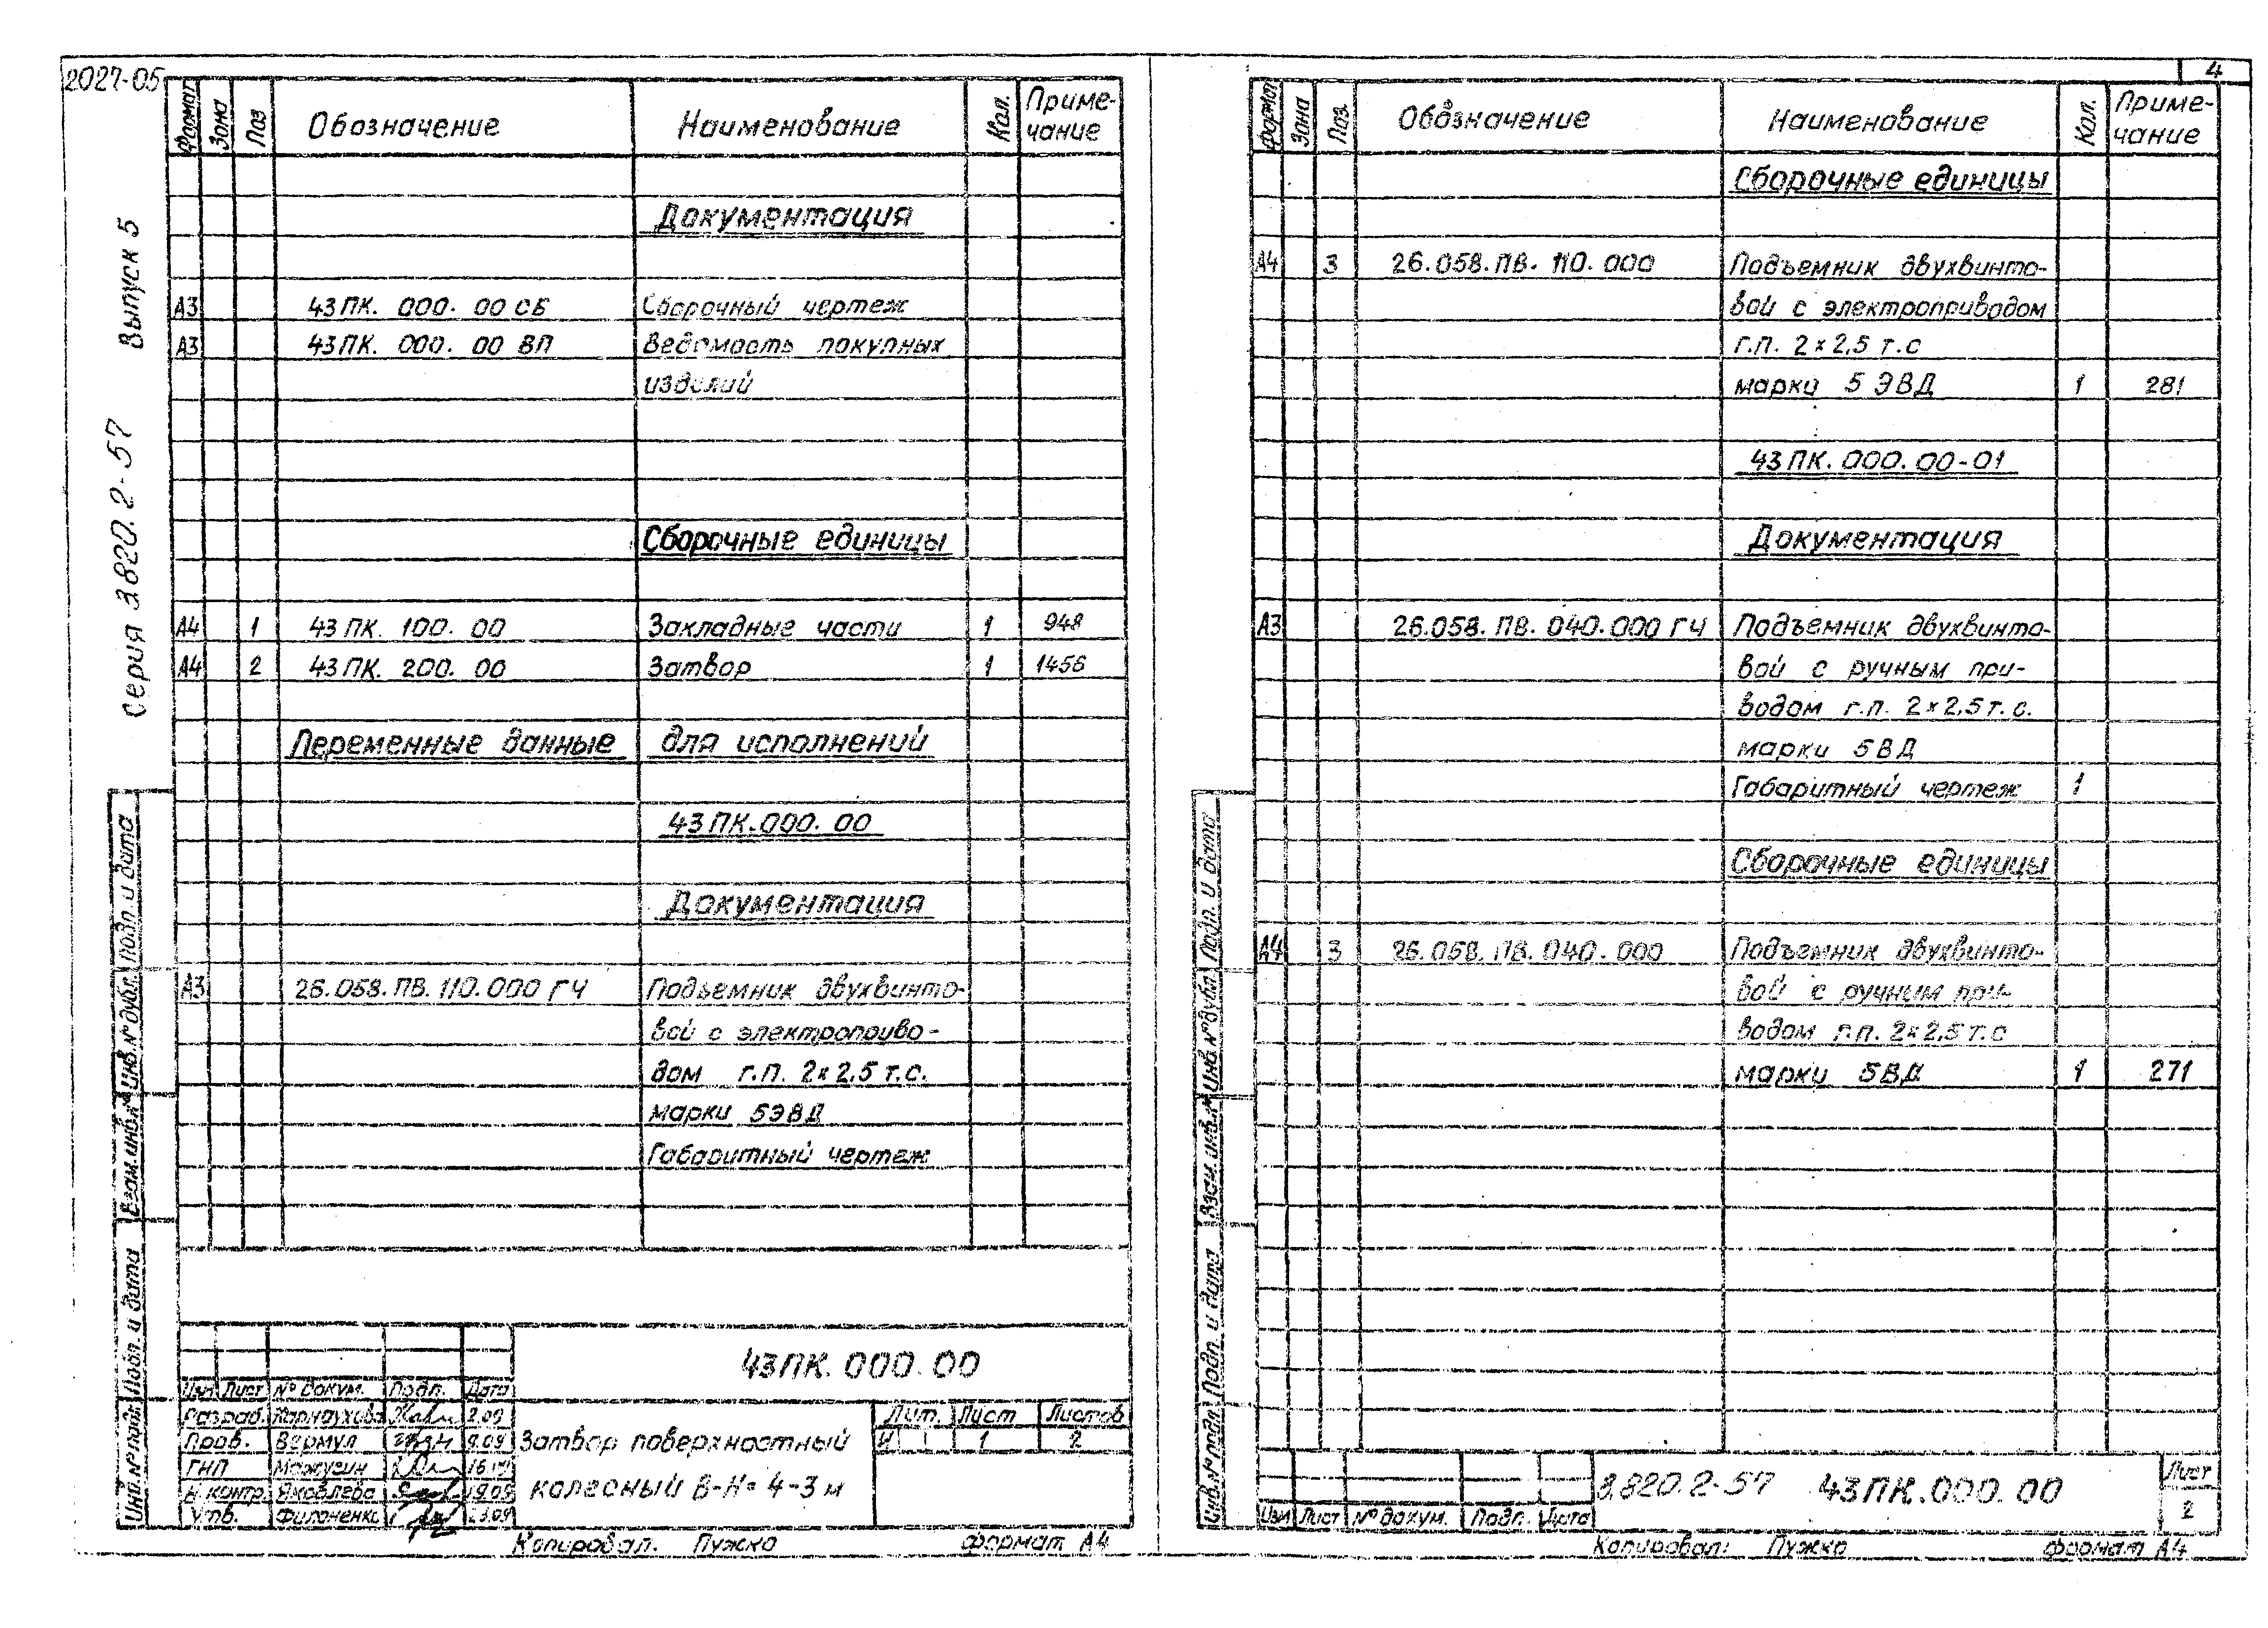 2027-05
Серия 3.820.2-57 Выпуск 5
Формат Зона Поз Обозначение Наименование Кол. Приме-
чание
Документация
А3 43ПК. 000. 00 СБ Сборочный чертеж
А3 43ПК. 000. 00 ВП Ведомость покупных
изделий
Сборочные единицы
А4 1 43ПК. 100. 00 Закладные части 1 948
А4 2 43ПК. 200. 00 Затвор 1 1456
Переменные данные для исполнений
43ПК.000.00
Документация
А3 26.058.ПВ.110.000 ГЧ Подъемник двухвинто-
вой с электроприво-
дом г.п. 2×2,5 т.с.
марки 5ЭВД
Габаритный чертеж
Инв.№подл. Подп. и дата Взам.инв.№ Инв.№дубл. Подп. и дата
43ПК.000.00
Изм Лист № докум. Подп. Дата
Разраб. Карнаухова 2.09
Пров. Вермул 9.09
ГИП Мажугин
Н.контр. Яковлева 19.09
Утв. Филоненко 23.09
Затвор поверхностный
колесный В-Н= 4-3 м
Лит. Лист Листов
И 1 2
Копировал. Пужко формат А4
4
Формат Зона Поз. Обозначение Наименование Кол. Приме-
чание
Сборочные единицы
А4 3 26.058.ПВ.110.000 Подъемник двухвинто-
вой с электроприводом
г.п. 2×2,5 т.с
марки 5 ЭВД 1 281
43ПК.000.00-01
Документация
А3 26.058.ПВ.040.000 ГЧ Подъемник двухвинто-
вой с ручным при-
водом г.п. 2×2,5 т.с.
марки 5ВД
Габаритный чертеж 1
Сборочные единицы
А4 3 26.058.ПВ.040.000 Подъемник двухвинто-
вой с ручным при-
водом г.п. 2×2,5 т.с
марки 5ВД 1 271
Инв.№подл. Подп. и дата Взам.инв.№ Инв.№дубл. Подп. и дата
Изм Лист № докум. Подп. Дата
3.820.2-57 43ПК.000.00
Лист
2
Копировал: Пужко формат А4